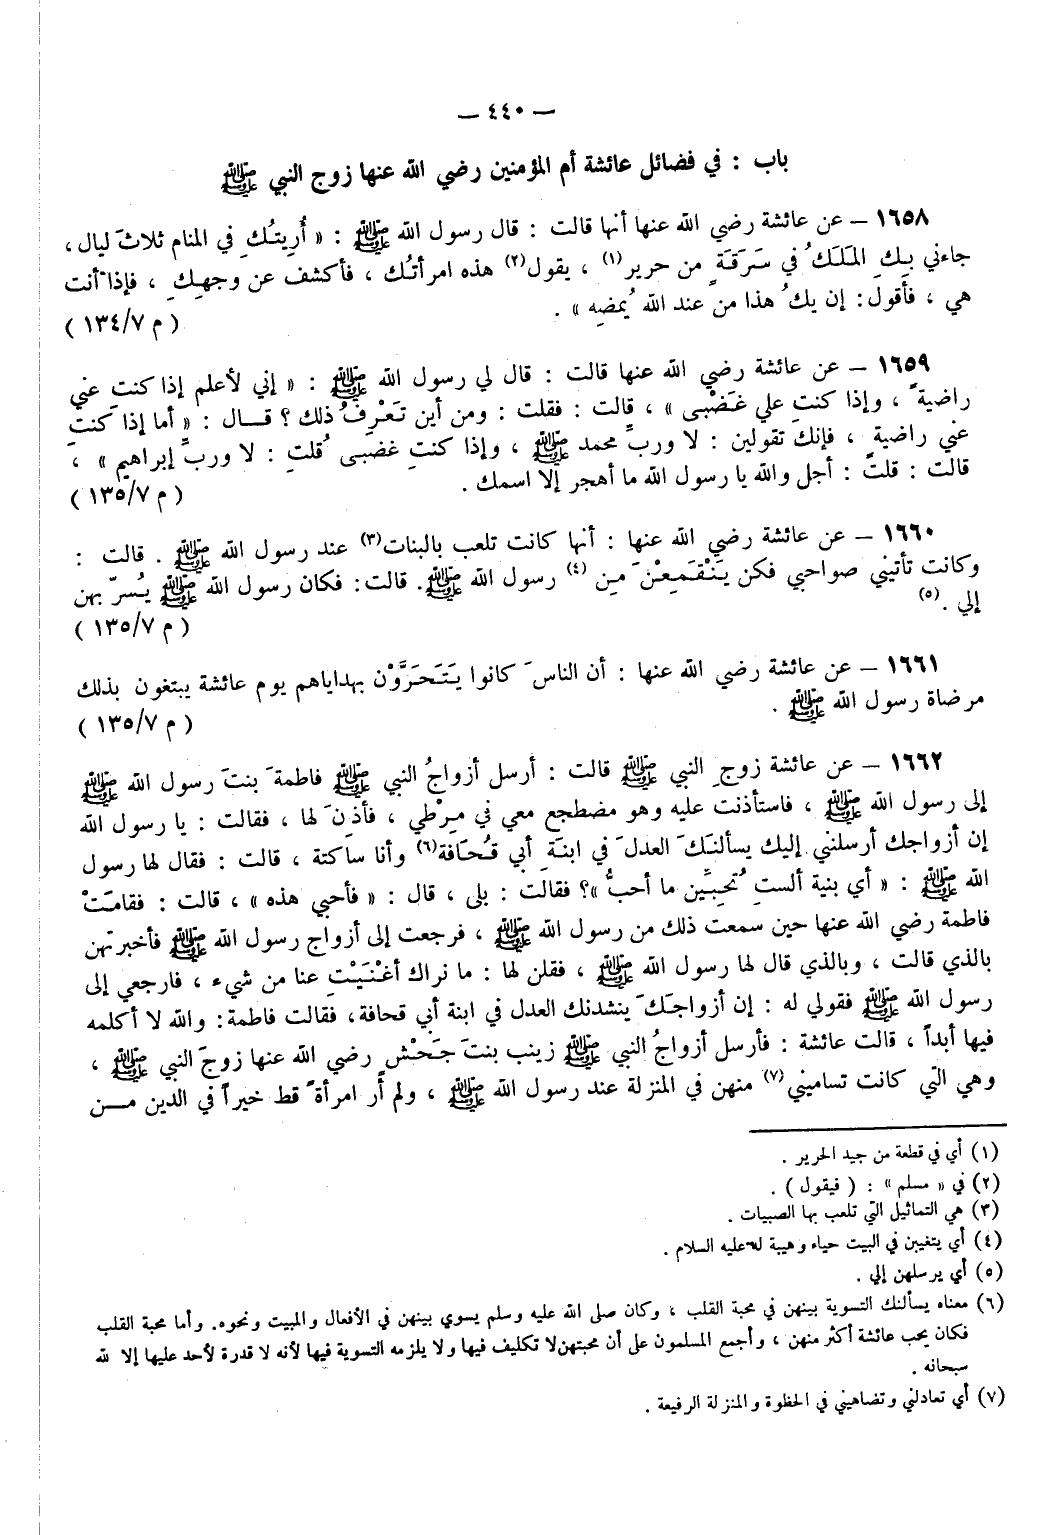 — ٤٤٠ —
باب : في فضائل عائشة أم المؤمنين رضي الله عنها زوج النبي ﷺ
١٦٥٨ – عن عائشة رضي الله عنها أنها قالت : قال رسول الله ﷺ : « أُرِيتُكِ في المنام ثلاثَ ليال ،
جاءني بِكِ المَلَكُ في سَرَقَةٍ من حرير(١) ، يقول(٢) هذه امرأتُك ، فأكشف عن وجهِكِ ، فإذا أنت
هي ، فأقول: إن يكُ هذا من عند الله يُمضِه » .
( م ١٣٤/٧ )
١٦٥٩ – عن عائشة رضي الله عنها قالت : قال لي رسول الله ﷺ : « إني لأعلم إذا كنتِ عني
راضيةً ، وإذا كنتِ علي غَضْبى » ، قالت : فقلت : ومن أين تَعْرِفُ ذلك ؟ قـــال : « أما إذا كنتِ
عني راضيةٍ ، فإنك تقولين : لا وربِّ محمد ﷺ ، وإذا كنتِ غضبى قُلتِ : لا وربِّ إبراهيم » ،
قالت : قلت : أجل والله يا رسول الله ما أهجر إلا اسمك .
( م ١٣٥/٧ )
١٦٦٠ – عن عائشة رضي الله عنها : أنها كانت تلعب بالبنات(٣) عند رسول الله ﷺ . قالت :
وكانت تأتيني صواحبي فكن يَنْقَمِعْنَ مِن (٤) رسول الله ﷺ. قالت: فكان رسول الله ﷺ يُسرّ بهن
إلي .(٥)
( م ١٣٥/٧ )
١٦٦١ – عن عائشة رضي الله عنها : أن الناسَ كانوا يَتَحَرَّوْن بهداياهم يوم عائشة يبتغون بذلك
مرضاة رسول الله ﷺ .
( م ١٣٥/٧ )
١٦٦٢ – عن عائشة زوجِ النبي ﷺ قالت : أرسل أزواجُ النبي ﷺ فاطمةَ بنتَ رسول الله ﷺ
إلى رسول الله ﷺ ، فاستأذنت عليه وهو مضطجع معي في مِرْطي ، فأذِنَ لها ، فقالت : يا رسول الله
إن أزواجك أرسلنني إليك يسألنكَ العدلَ في ابنةِ أبي قُحَافة(٦) وأنا ساكتة ، قالت : فقال لها رسول
الله ﷺ : « أي بنية ألستِ تُحِبِّين ما أحبُّ »؟ فقالت : بلى ، قال : « فأحبي هذه » ، قالت : فقامَتْ
فاطمة رضي الله عنها حين سمعت ذلك من رسول الله ﷺ ، فرجعت إلى أزواج رسول الله ﷺ فأخبرتهن
بالذي قالت ، وبالذي قال لها رسول الله ﷺ ، فقلن لها : ما نراك أغْنَيْتِ عنا من شيء ، فارجعي إلى
رسول الله ﷺ فقولي له : إن أزواجَكَ ينشدنك العدل في ابنة أبي قحافة، فقالت فاطمة: والله لا أكلمه
فيها أبداً ، قالت عائشة : فأرسل أزواجُ النبي ﷺ زينب بنتَ جَحْش رضي الله عنها زوجَ النبي ﷺ ،
وهي التي كانت تساميني(٧) منهن في المنزلة عند رسول الله ﷺ ، ولم أر امرأةً قط خيراً في الدين مــن
(١) أي في قطعة من جيد الحرير .
(٢) في « مسلم » : ( فيقول ) .
(٣) هي التماثيل التي تلعب بها الصبيات .
(٤) أي يتغيبن في البيت حياء وهيبة له عليه السلام .
(٥) أي يرسلهن إلي .
(٦) معناه يسألنك التسوية بينهن في محبة القلب ، وكان صلى الله عليه وسلم يسوي بينهن في الأفعال والمبيت ونحوه. وأما محبة القلب
فكان يحب عائشة أكثر منهن ، وأجمع المسلمون على أن محبتهن لا تكليف فيها ولا يلزمه التسوية فيها لأنه لا قدرة لأحد عليها إلا لله
سبحانه .
(٧) أي تعادلني وتضاهيني في الحظوة والمنزلة الرفيعة .